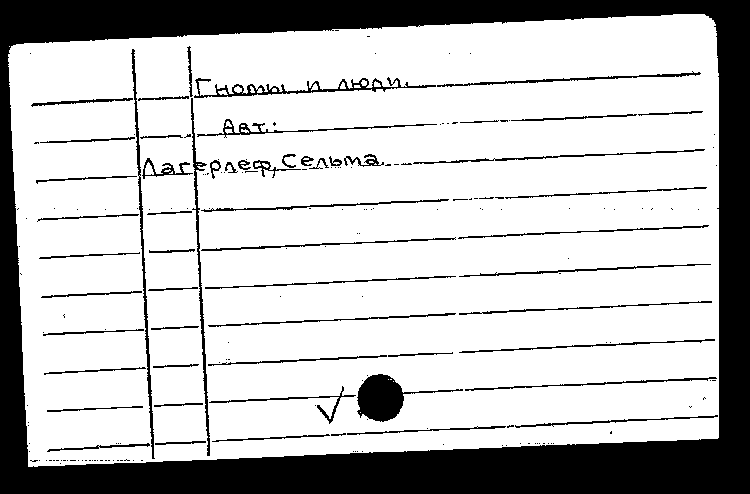 Гномы и люди.
Авт.:
Лагерлеф, Сельма.